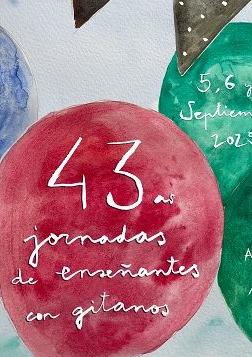 43 as
jornadas
de enseñantes
con gitanos
5, 6 y
Septiem
2025
A